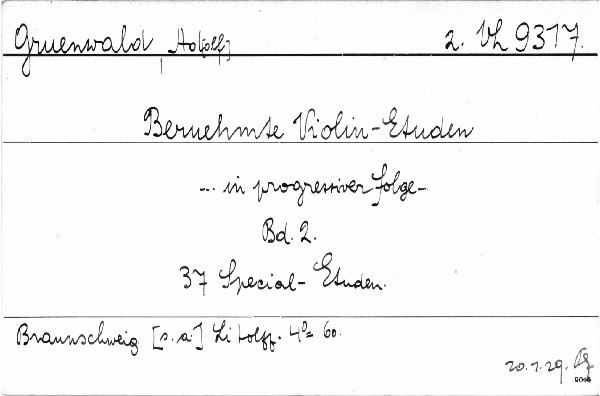 Gruenwald, Ad[olf] 2. Vh 9317.
Beruehmte Violin-Etuden
... in progressiver Folge-
Bd. 2.
37 Special-Etuden.
Braunschweig [s.a.] Litolff. 4°= 60.
20.1.29.